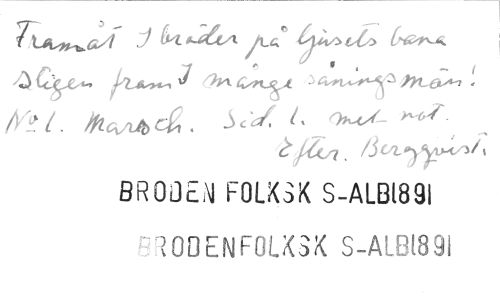 Framåt I bröder på ljusets bana
stigen fram I månge såningsmän!
No 1. Marsch. Sid. 1. met not.
Efter. Bergqvist.
BRODEN FOLKSK S-ALB1891
BRODENFOLKSK S-ALB1891